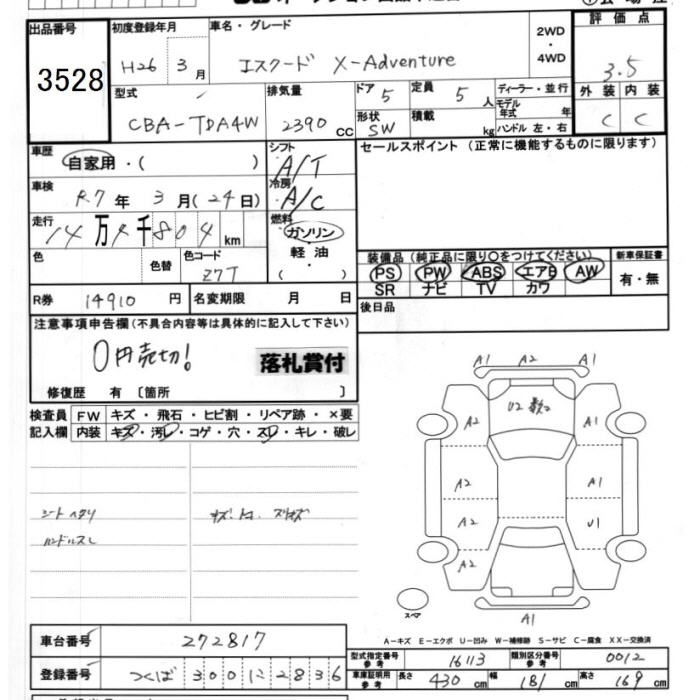 出品番号 初度登録年月 車名・グレード 2WD・4WD 評価点
3528 H26年 3月 エスクード X-Adventure 3.5
型式 排気量 ドア 5 定員 5人 ディーラー・並行 外装 内装
CBA-TDA4W 2390cc 形状 SW 積載 kg モデル年式 年 ハンドル 左・右 C C
車歴 自家用・( ) シフト A/T セールスポイント (正常に機能するものに限ります)
車検 R7年 3月(24日) 冷房 A/C
走行 14万 千804km 燃料 ガソリン
色 色替 色コード Z7T 軽油 ( )
装備品(純正品に限り○をつけてください) 新車保証書
PS PW ABS エアB AW 有・無
SR ナビ TV カワ
R券 14910円 名変期限 月 日 後日品
注意事項申告欄(不具合内容等は具体的に記入して下さい)
0円売切! 落札賞付
修復歴 有 〔箇所 〕
検査員 FW キズ・飛石・ヒビ割・リペア跡・×要
記入欄 内装 キズ・汚レ・コゲ・穴・スレ・キレ・破レ
シートヘタリ
ハンドルスレ
A1 A2 A1
U2 数コ
A2 A1
A2 A1
A2 U1
A2
スペア A1
A-キズ E-エクボ U-凹み W-補修跡 S-サビ C-腐食 XX-交換済
車台番号 272817
型式指定番号 参考 16113 類別区分番号 参考 0012
登録番号 つくば 300 に 2836
車庫証明用 参考 長さ 430cm 幅 181cm 高さ 169cm